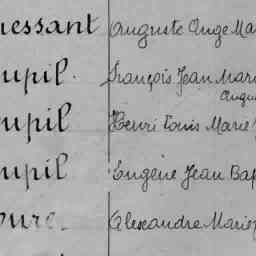 uessant Auguste Ange Ma
upil. François Jean Mari
Augu
upil Henri Louis Marie
upil Eugène Jean Bap
oure. Alexandre Marie